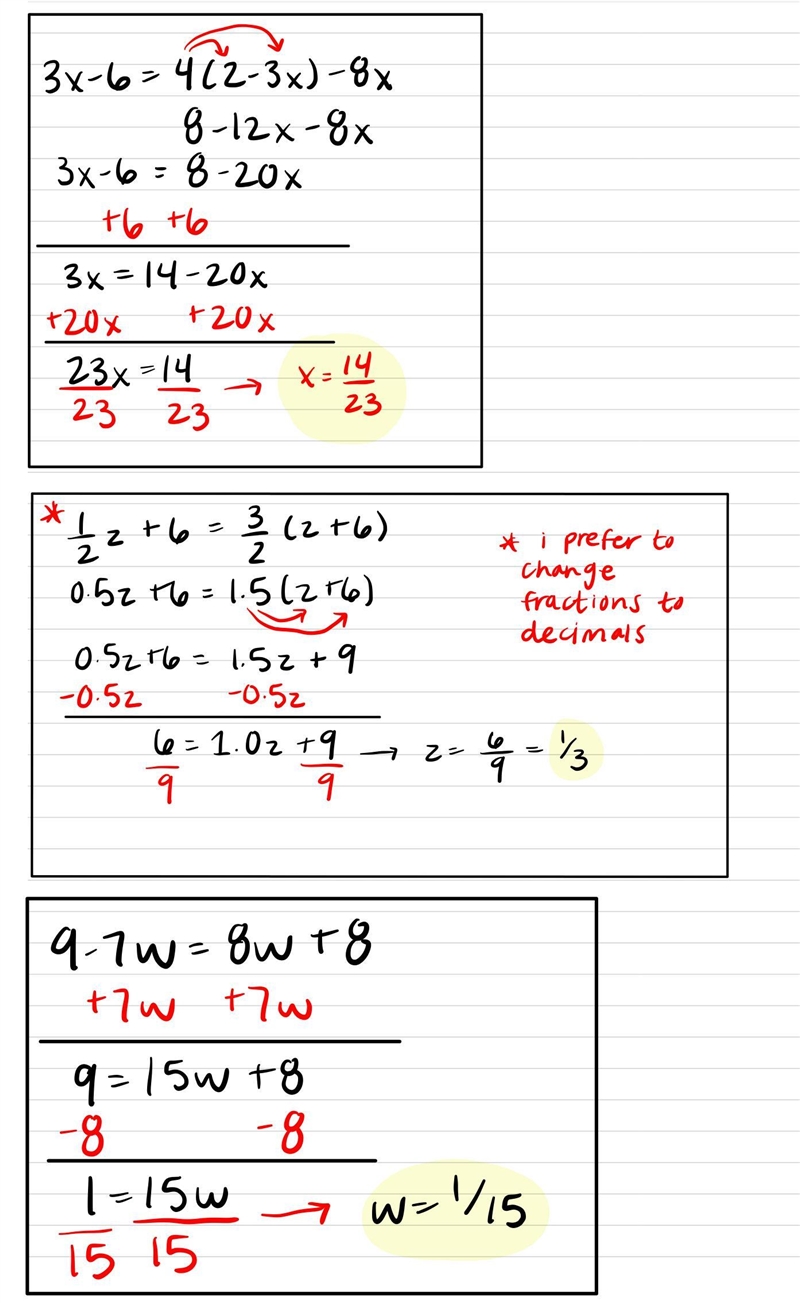 3x-6 = 4(2-3x)-8x
8-12x-8x
3x-6 = 8-20x
+6 +6
3x = 14-20x
+20x +20x
23x = 14 → x = 14/23
23 23
* 1/2 z + 6 = 3/2 (z+6)
0.5z +6 = 1.5(z+6)
0.5z+6 = 1.5z + 9
-0.5z -0.5z
6 = 1.0z +9 → z = 6/9 = 1/3
9 9
* i prefer to
change
fractions to
decimals
9-7w = 8w +8
+7w +7w
9 = 15w +8
-8 -8
1 = 15w → w = 1/15
15 15